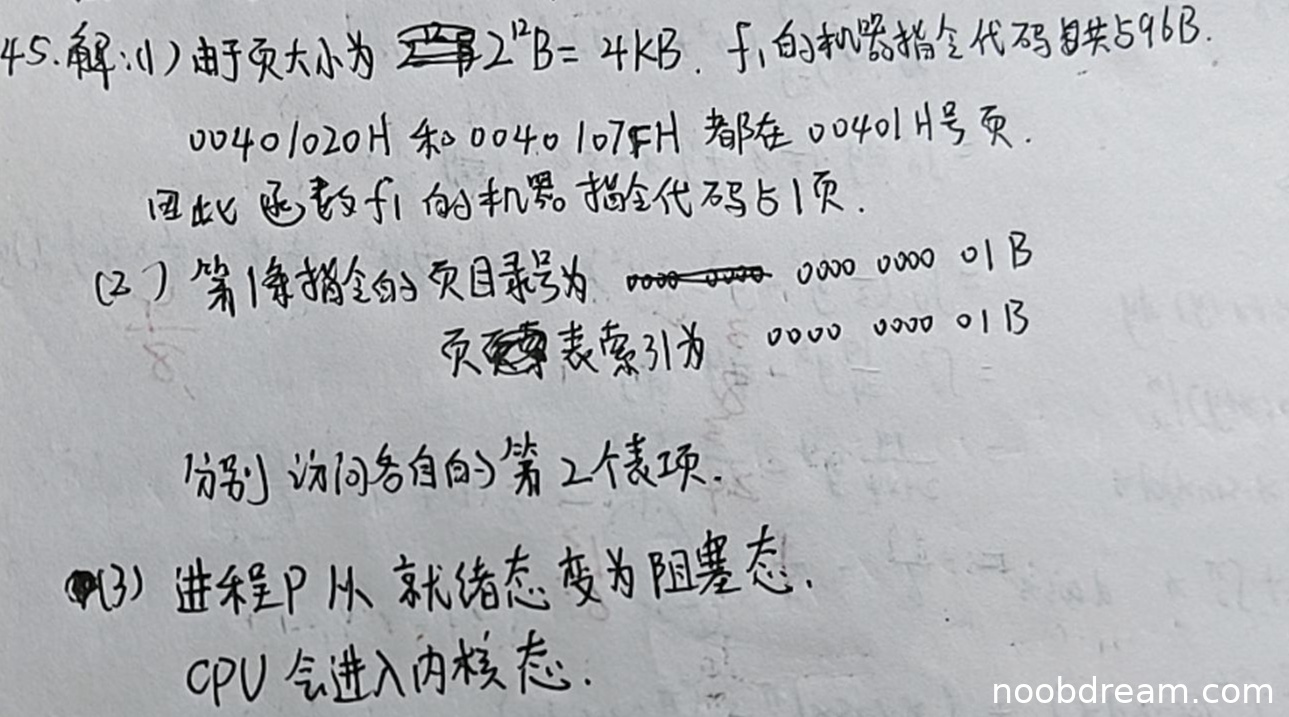 45.解:(1) 由于页大小为 2¹²B = 4KB. f₁的机器指令代码共占96B.
00401020H 和 0040107FH 都在 00401H号页.
因此 函数f₁ 的机器指令代码占1页.
(2) 第1条指令的页目录号为 0000 0000 01B
页表索引为 0000 0000 01B
分别访问各自的第2个表项.
(3) 进程P从就绪态变为阻塞态.
CPU会进入内核态.
noobdream.com